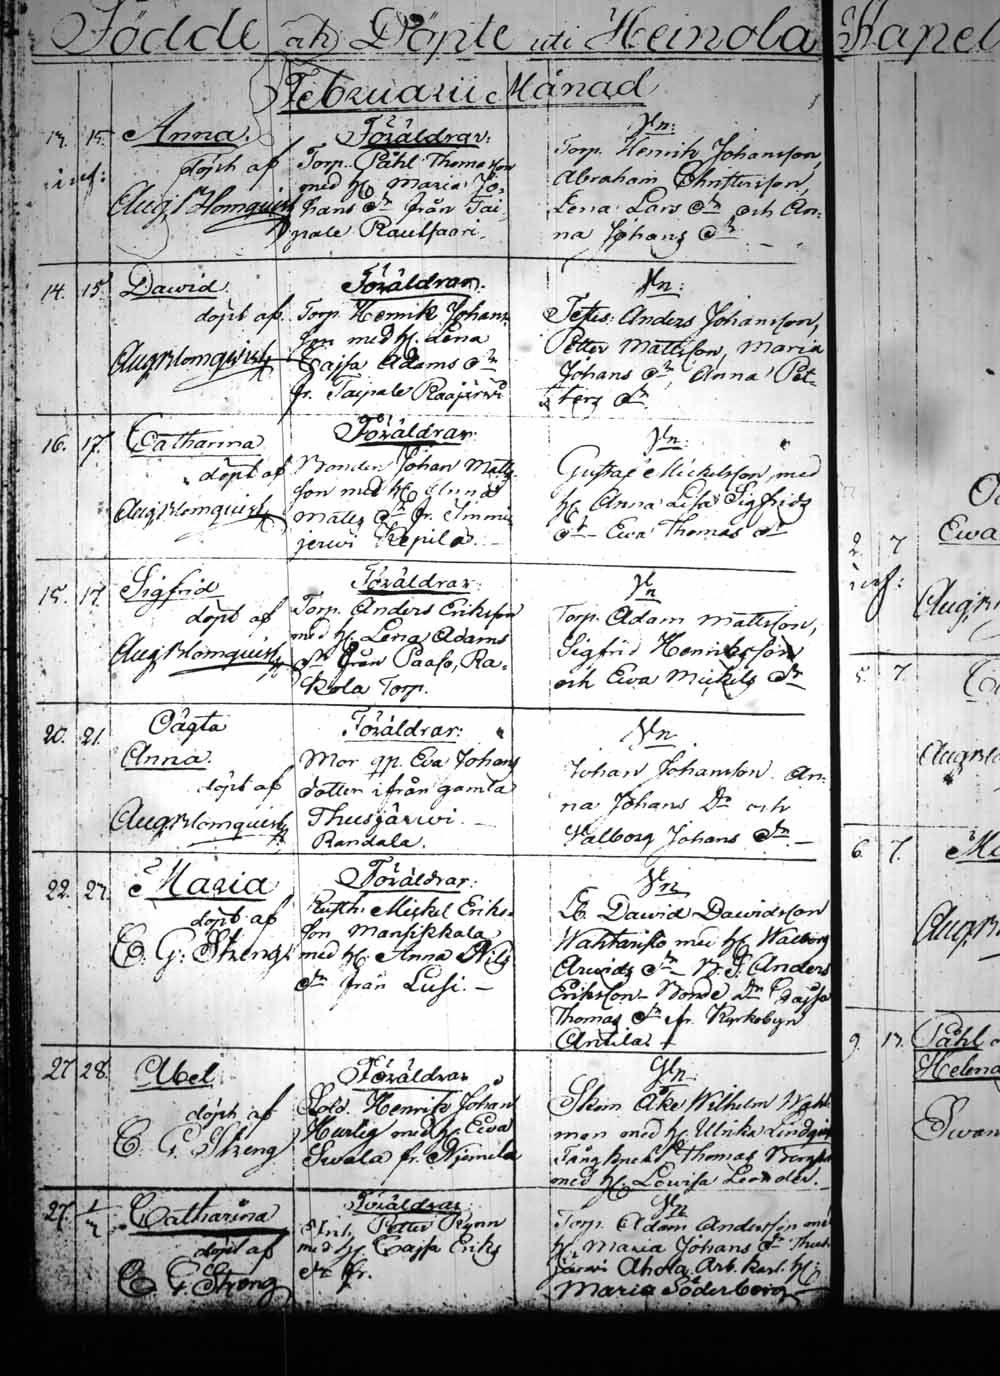 Födde och Döpte uti Heinola Kapel
Februarii Månad
13. 15. Anna.
döpt af
Aug Blomquist
Föräldrar:
Torp. Påhl Thomasson
med h. Maria Jo-
hans dr från Tai-
pale Rautsaari.
Vn:
Torp. Henrik Johansson,
Abraham Christersson,
Lena Lars dr och An-
na Johans dr
14. 15. Dawid
döpt af
Aug Blomquist
Föräldrar:
Torp. Henrik Johans-
son med h. Lena
Cajsa Adams dr
fr. Taipale Raajärwi
Vn:
Anders Johansson,
Petter Mattsson, Maria
Johans dr, Anna Pet-
ters dr.
16. 17. Catharina
döpt af
Aug Blomquist
Föräldrar:
Bonden Johan Matts-
son med h. Anna
Matts dr fr. Immi-
jerwi Kepilä.
Vn:
Gustaf Mickelsson, med
h. Anna Lisa Sigfrids
dr - Ewa Thomas dr
15. 17. Sigfrid
döpt af
Aug Blomquist
Föräldrar:
Torp. Anders Eriksson
med h. Lena Adams
dr från Paaso, Ra-
kola Torp.
Vn
Torp. Adam Mattsson,
Sigfrid Henriksson
och Ewa Mickels dr
20. 21. Oägta
Anna.
döpt af
Aug Blomquist
Föräldrar:
Mor qp. Eva Johans
dotter ifrån gamla
Thusjärwi
Randala.
Vn
Johan Johansson. An-
na Johans Dr och
Walborg Johans dr.
22. 27. Maria
döpt af
E. G. Streng.
Föräldrar:
Mickel Eriks-
son Mansikkala
med h. Anna Nils
dr från Lusi.
Vn
Dawid Dawidsson
med h. Walborg
Arwids dr - Anders
Eriksson - Bonde dr Cajsa
Thomas dr fr. Kyrkobyn
Anttila.
27. 28. Abel
döpt af
E. G. Streng
Föräldrar
Sold. Henrik Johan
Hurtig med h. Ewa
Swala fr. Njemelä
Vn:
Åke Wilhelm Wahl-
man med h. Ulrika Lindqvist
Thomas
med h. Lowisa Leander.
27. Catharina
döpt af
E G Streng
Föräldrar
Petter Rynn
med h. Cajsa Eriks
dr fr.
Vn
Torp. Adam Andersson med
h. Maria Johans dr Thus-
järwi Ahola. Arb. karl. h:
Maria Söderberg
2. 7.
Ewa
5. 7.
6. 7.
9. 13. Påhl
Helena